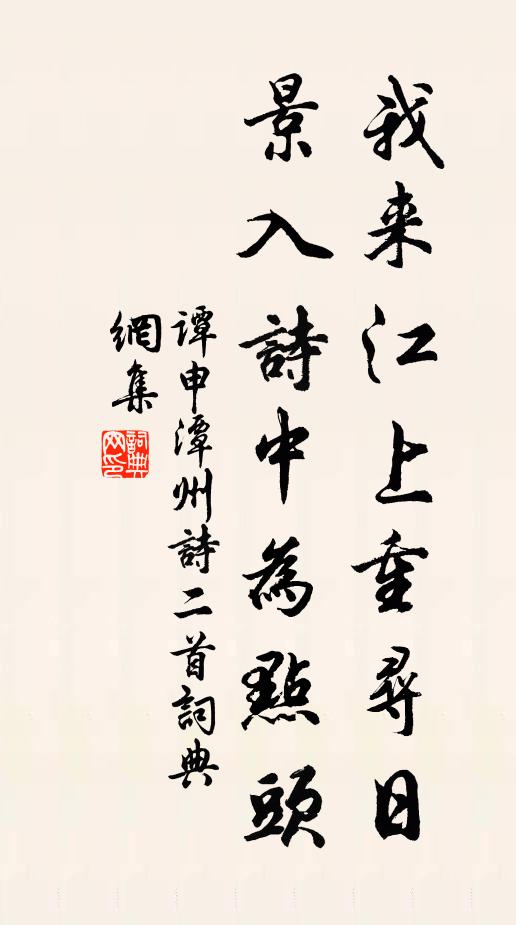 我来江上重尋日
景入詩中為點頭
谭申潭州詩二首詞典
網集
詞典
网印